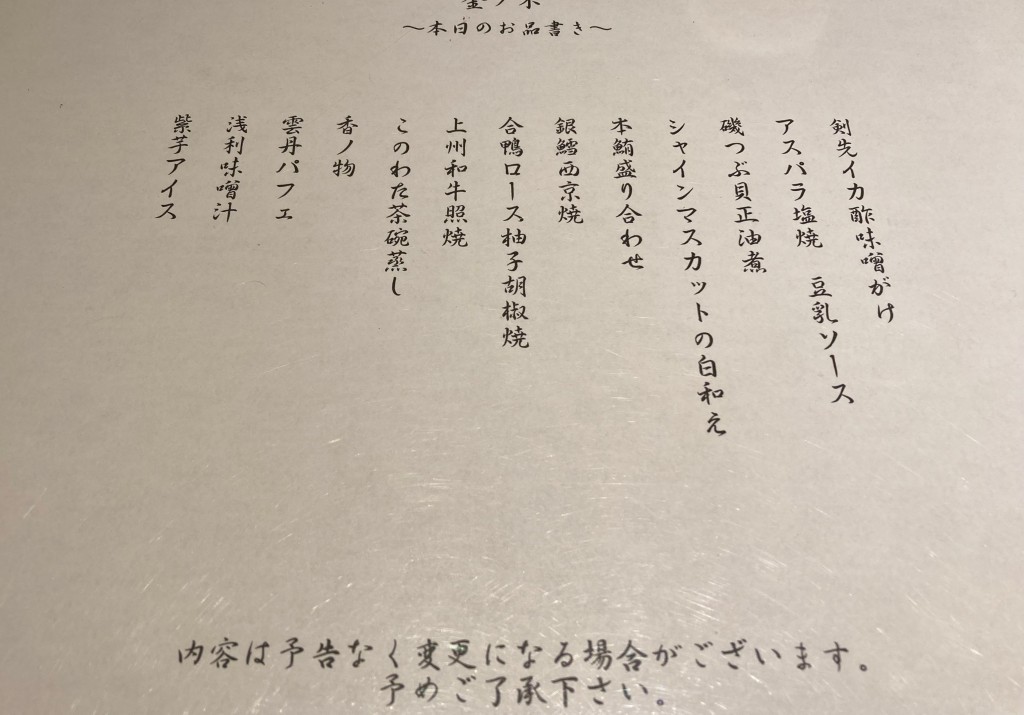 ～本日のお品書き～
剣先イカ酢味噌がけ
アスパラ塩焼 豆乳ソース
磯つぶ貝正油煮
シャインマスカットの白和え
本鮪盛り合わせ
銀鱈西京焼
合鴨ロース柚子胡椒焼
上州和牛照焼
このわた茶碗蒸し
香ノ物
雲丹パフェ
浅利味噌汁
紫芋アイス
内容は予告なく変更になる場合がございます。
予めご了承下さい。